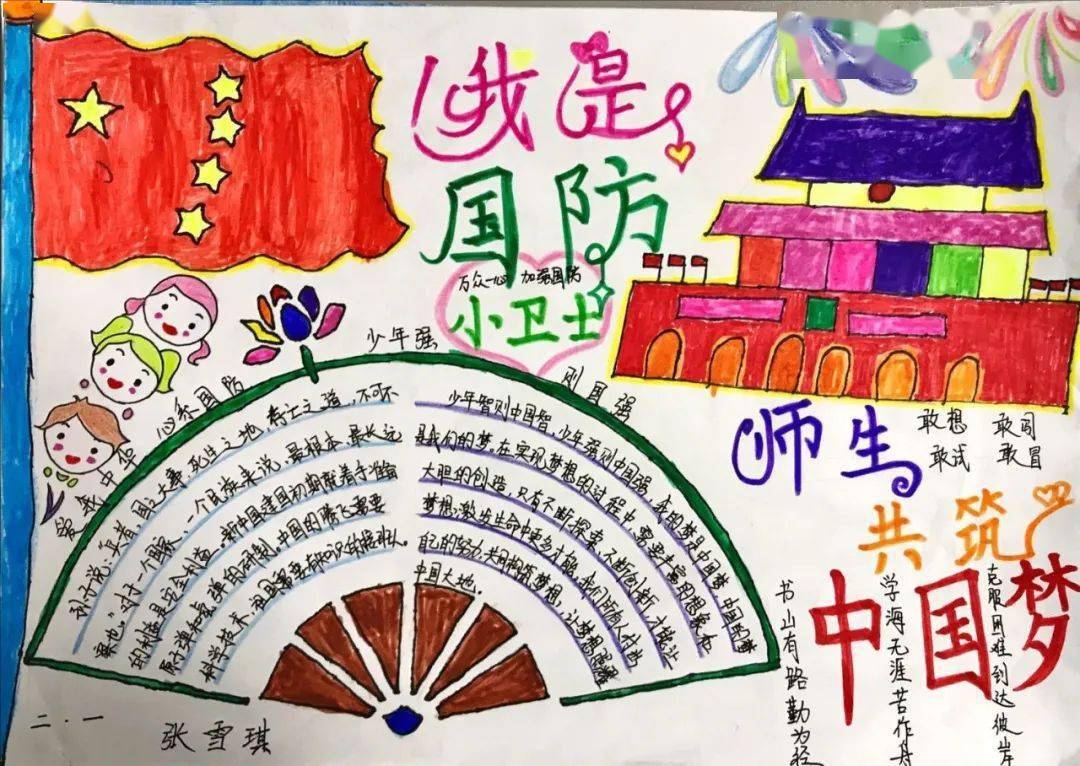 我是
国防
万众一心 加强国防
小卫士
少年强
则国强
心系国防
爱我中华
孙子说：兵者，国之大事，死生之地，存亡之道，不可不
察也。"对于一个国家、一个民族来说，最根本、最长远
的利益是安全利益。新中国建国初期就着手准备
原子弹和氢弹的研制，中国的腾飞需要
科学技术，祖国需要
少年智则中国智，少年强则中国强，我的梦是中国梦，中国的梦
是我们的梦，在实现梦想的过程中，需要丰富的想象和
大胆的创造，只有不断探索，不断创新，才能让
梦想激发生命中更多才能，我们所有人都当
自己的努力共同构筑梦想，让梦想
中国大地。
师生
敢想 敢闯
敢试 敢冒
共筑
中国梦
书山有路勤为径
学海无涯苦作舟
克服困难到达彼岸
二．一
张雪琪